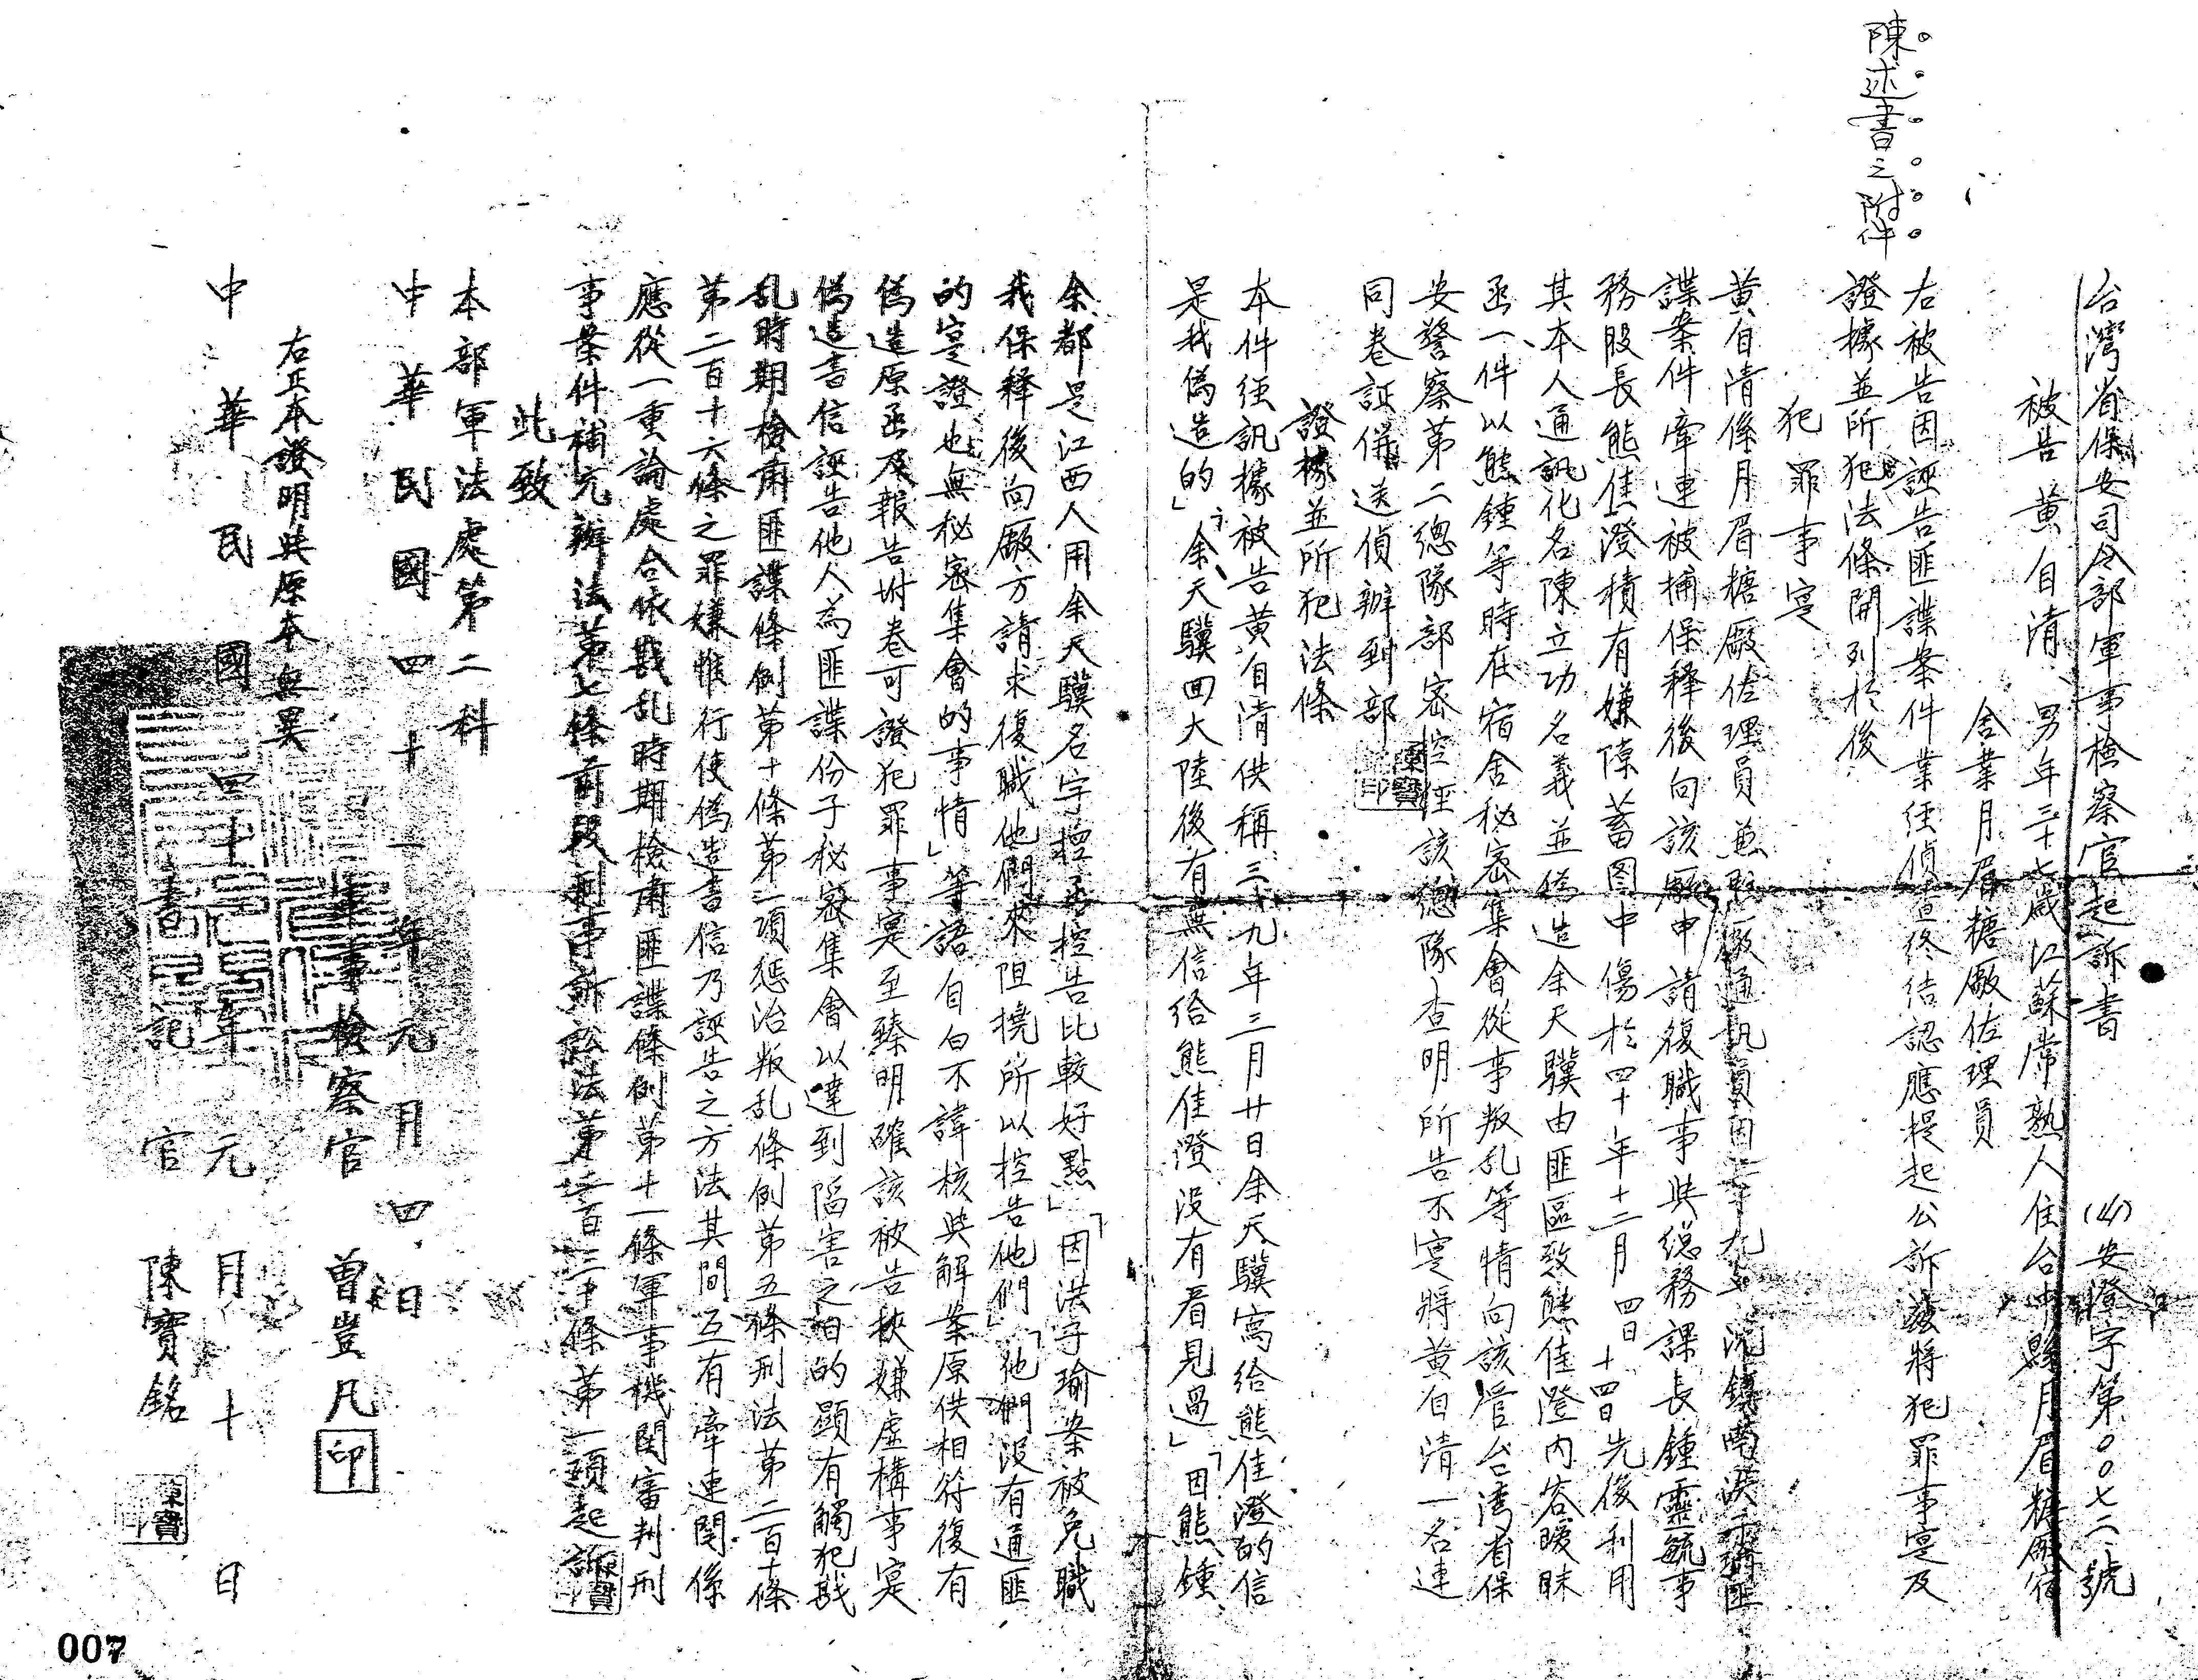 陳述書之附件
台灣省保安司令部軍事檢察官起訴書 安澄字第〇〇七二號
被告 黃自清、男年三十七歲江蘇常熟人住台中縣月眉糖廠宿
舍業月眉糖廠佐理員
右被告因誣告匪諜案件業經偵查終結認應提起公訴茲將犯罪事寔及
證據並所犯法條開列於後
犯罪事寔
黃自清係月眉糖廠佐理員兼駐廠通訊員因三十九年洪鎮
諜案件牽連被捕保释後向該廠申請復職事與總務課長鍾靈毓事
務股長熊佳澄積有嫌隙蓄图中傷於四十年十二月四日十四日先後利用
其本人通訊化名陳立功名義並偽造余天驥由匪區致熊佳澄內容曖昧
函一件以熊鍾等時在宿舍秘密集會從事叛乱等情向該管台湾省保
安警察第二總隊部密控經該總隊查明所告不寔將黃自清一名連
同卷証併送偵辦到部
證據並所犯法條
本件經訊據被告黃自清供稱三十九年三月廿日余天驥寫给熊佳澄的信
是我偽造的」「余天驥回大陸後有無信给熊佳澄没有看見過」「因熊鍾
余都是江西人用余天驥名字控告比較好點」「因洪守瑜案被免職
我保释後向廠方請求復職他們來阻撓所以控告他們」「他們没有通匪
的寔證也無秘密集會的事情」等語自白不諱核與解案原供相符復有
偽造原函及報告坿卷可證犯罪事寔至臻明確該被告挾嫌虛構事寔
偽造書信誣告他人為匪諜份子秘密集會以達到陷害之目的顯有觸犯戡
乱時期檢肅匪諜條例第十條第二項懲治叛乱條例第五條刑法第二百十條
第二百十六條之罪嫌惟行使偽造書信乃誣告之方法其間互有牽連関係
應從一重論處合依戡乱時期檢肅匪諜條例第十一條軍事機関審判刑
事案件補充辦法第七條前段刑事訴訟法第二百三十條第一項起訴
此致
本部軍法處第二科
中華民國四十一年元月四日
軍事檢察官 曾豈凡 印
右正本證明與原本無異
中華民國四十年元月十日
書記官 陳寶銘
007